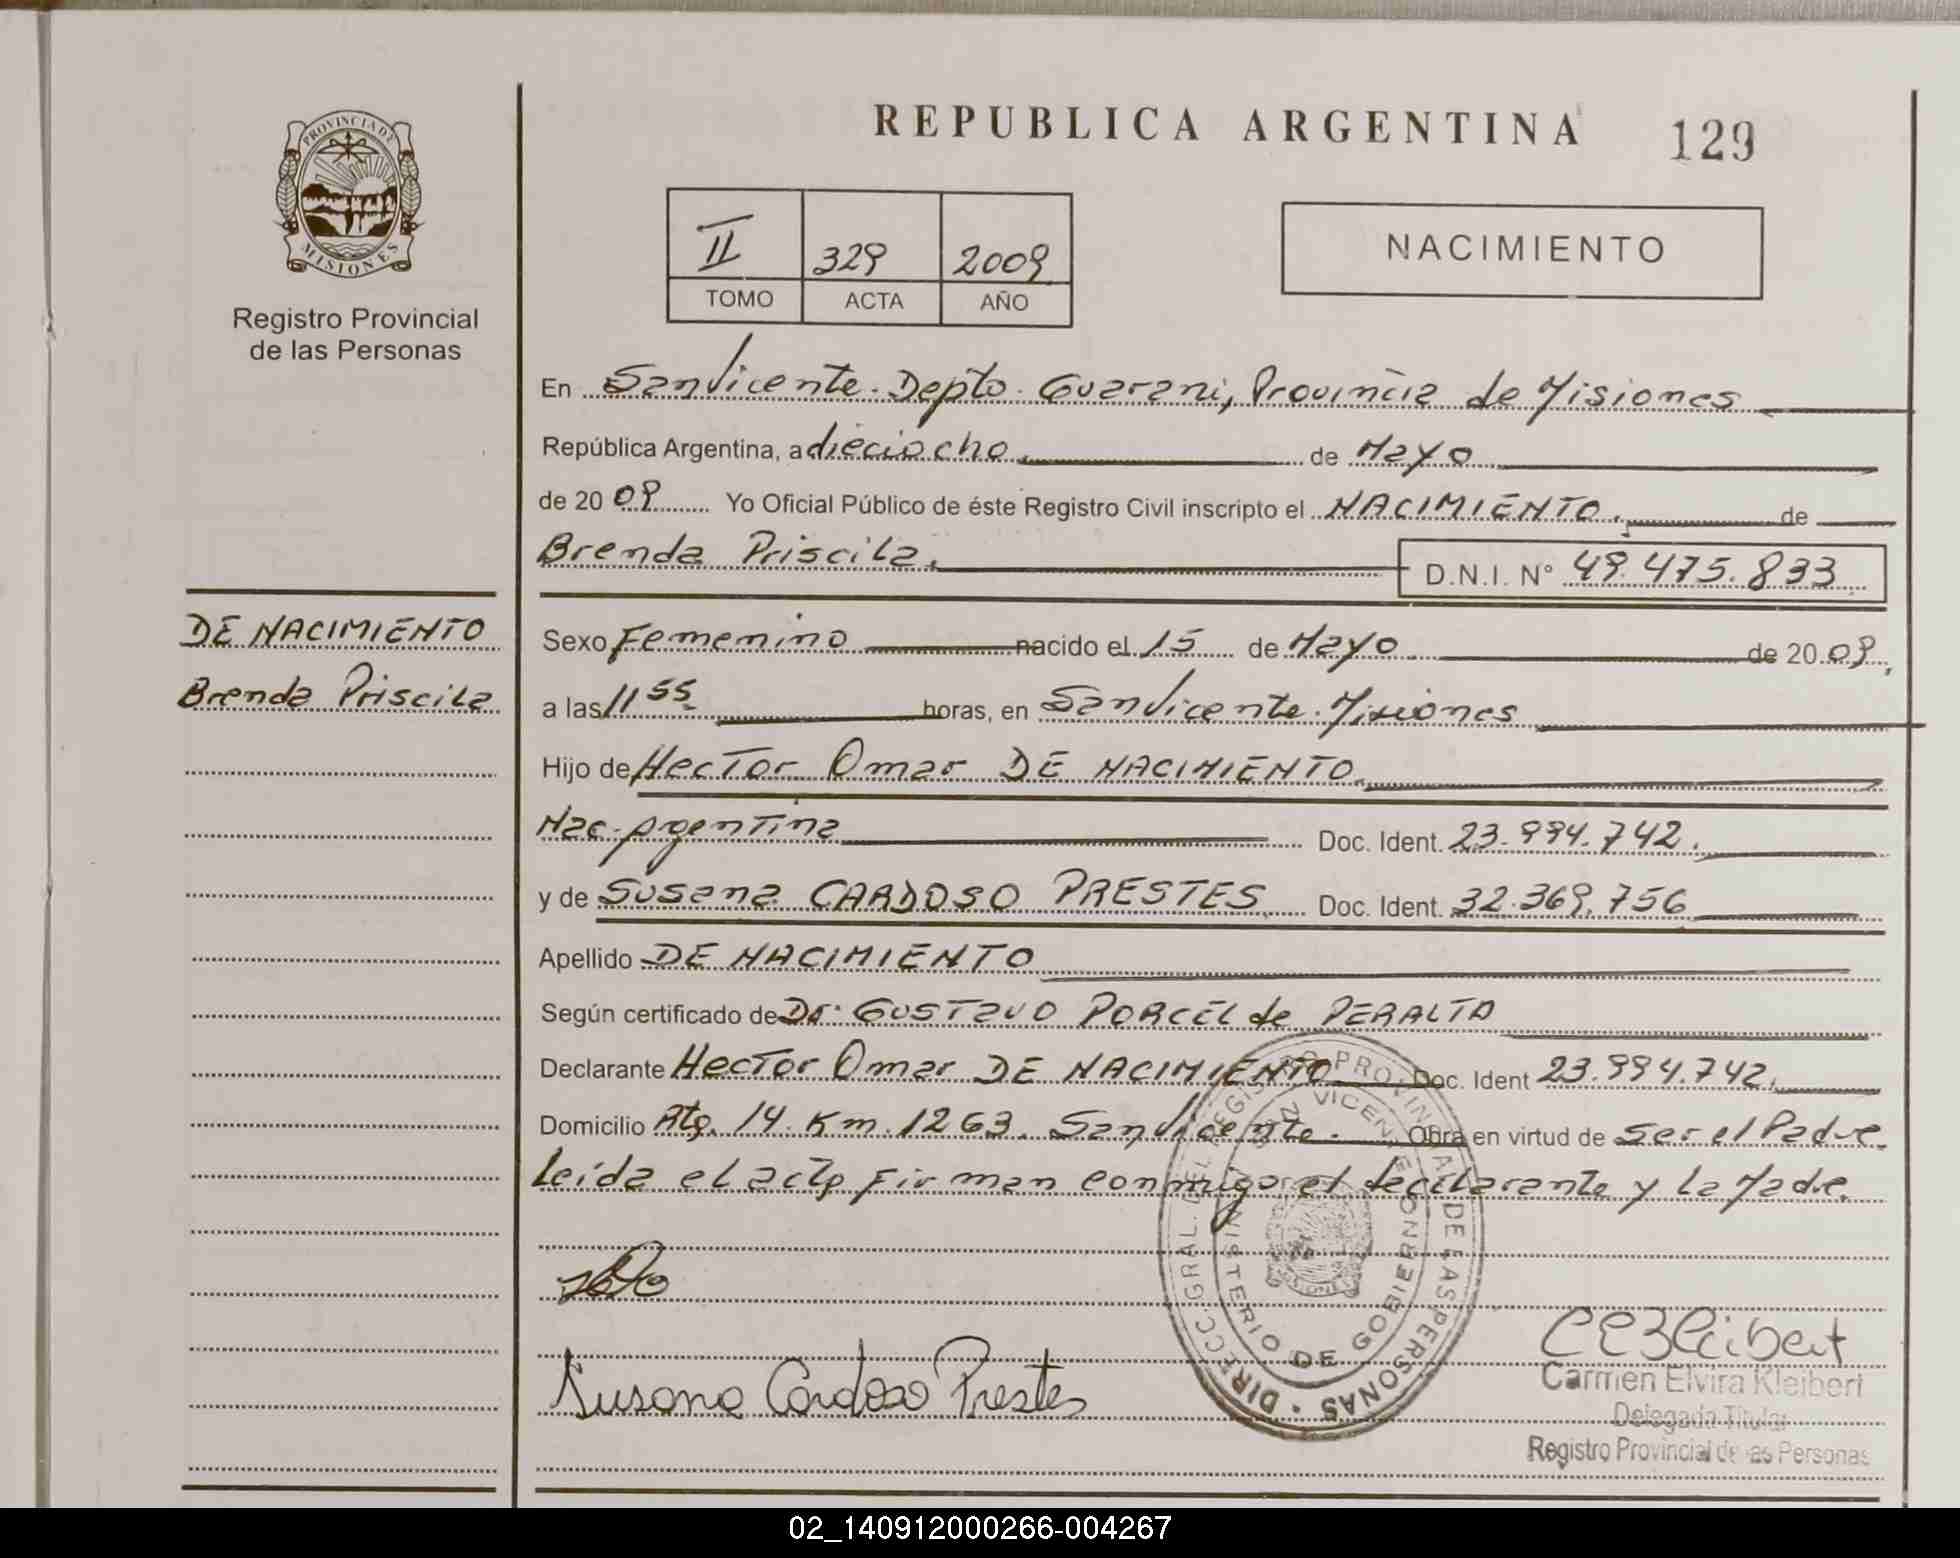 REPUBLICA ARGENTINA 129
PROVINCIA DE
MISIONES
Registro Provincial
de las Personas
II 329 2009
TOMO ACTA AÑO
NACIMIENTO
En San Vicente. Depto. Guarani, Provincia de Misiones
República Argentina, a dieciocho. de Mayo
de 20 09 Yo Oficial Público de éste Registro Civil inscripto el NACIMIENTO. de
Brenda Priscila. D.N.I. N° 49.475.833
DE NACIMIENTO
Brenda Priscila
Sexo Femenino nacido el 15 de Mayo de 20 09,
a las 11 55 horas, en San Vicente. Misiones
Hijo de Hector Omar DE NACIMIENTO.
Nac. Argentina Doc. Ident. 23.994.742.
y de Susana CARDOSO PRESTES Doc. Ident. 32.369.756
Apellido DE NACIMIENTO
Según certificado de Dr. Gustavo PORCEL de PERALTA
Declarante Hector Omar DE NACIMIENTO Doc. Ident 23.994.742.
Domicilio Rta. 14. Km. 1263. San Vicente. Obra en virtud de ser el Padre.
Leída el acta Firman conmigo el declarante y la Madre.
DIRECC. GRAL. DEL REGISTRO PROVINCIAL DE LAS PERSONAS
SAN VICENTE
MINISTERIO DE GOBIERNO
Susana Cardoso Prestes
CEKleibert
Carmen Elvira Kleibert
Delegada Titular
Registro Provincial de las Personas
02_140912000266-004267